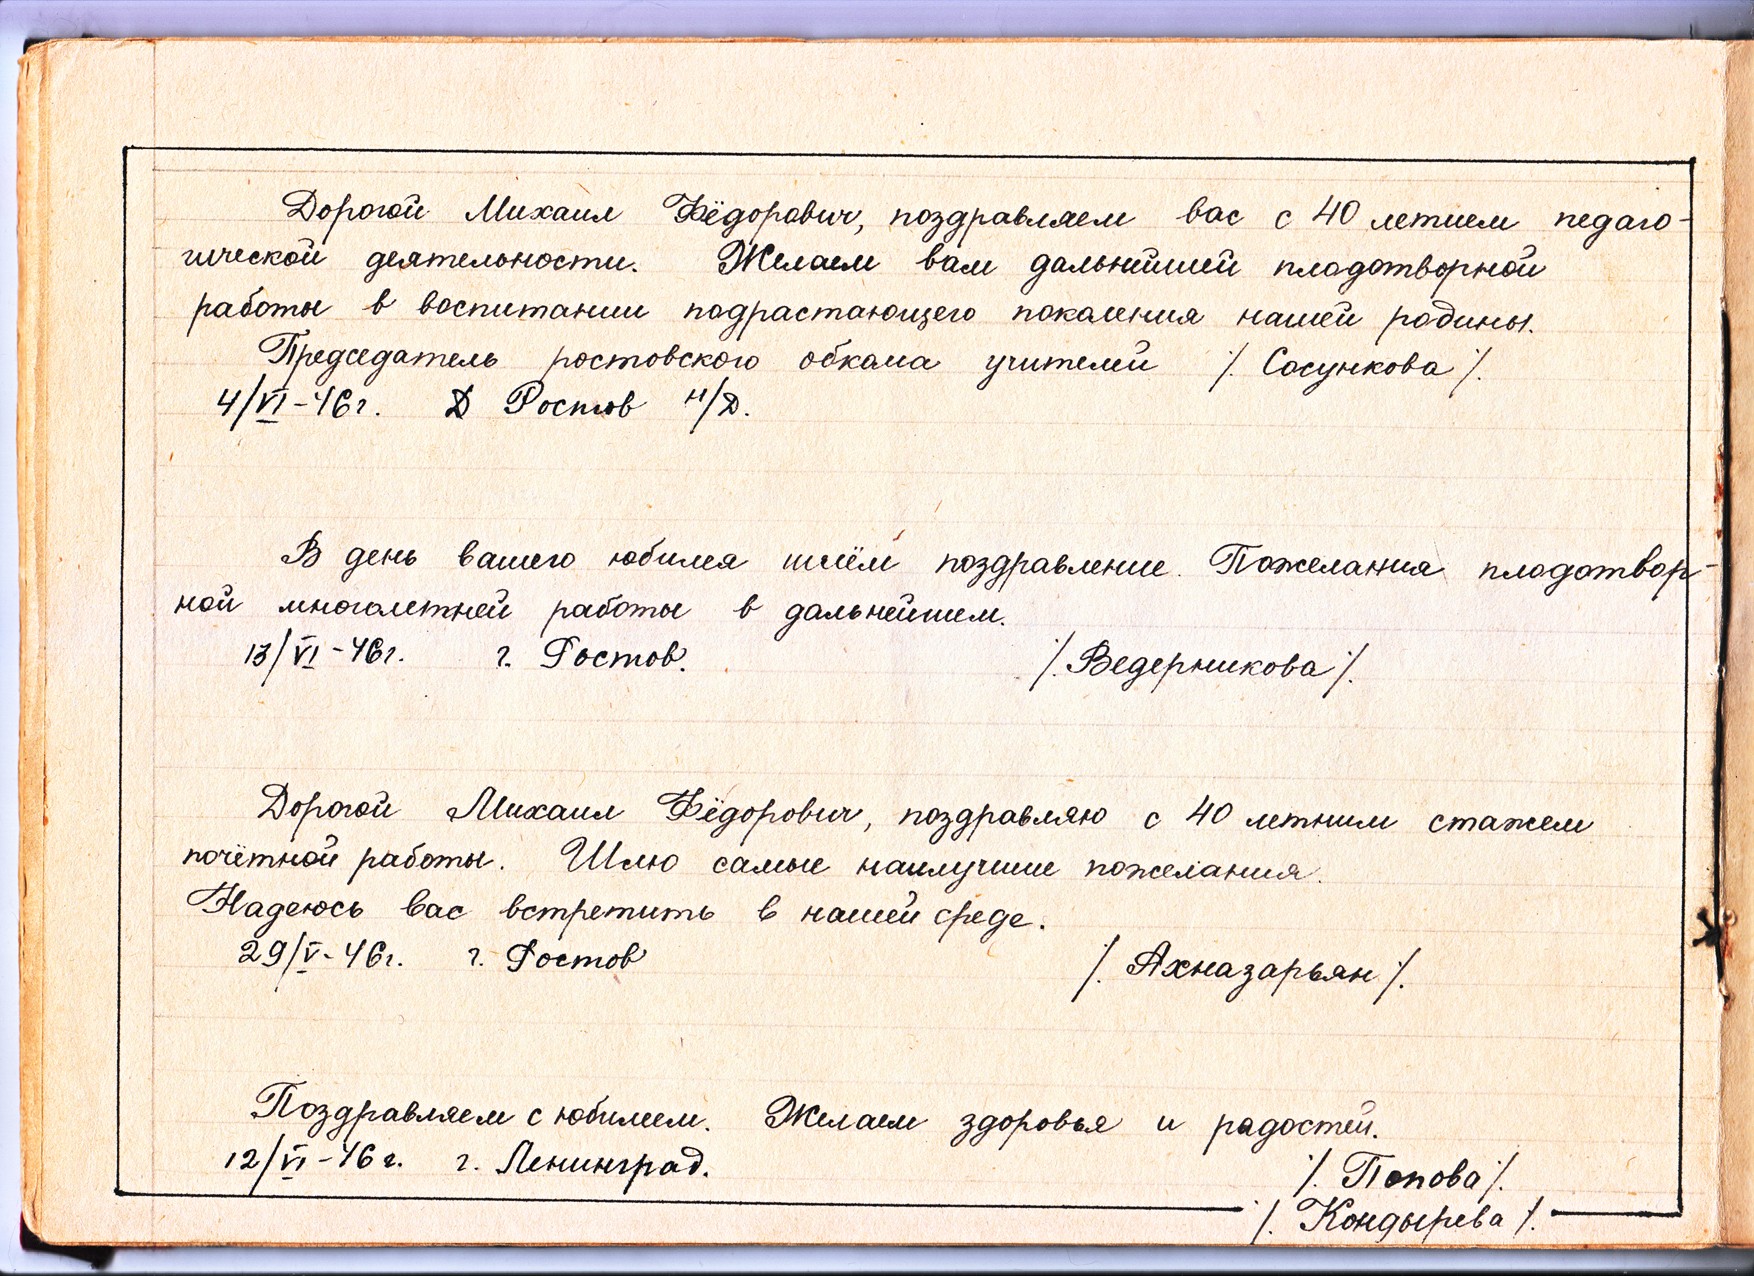 Дорогой Михаил Фёдорович, поздравляем вас с 40 летием педаго-
гической деятельности. Желаем вам дальнейшей плодотворной
работы в воспитании подрастающего поколения нашей родины.
Председатель ростовского обкома учителей /. Сосункова /.
4/VI-46г. Ростов н/Д.
В день вашего юбилея шлём поздравление. Пожелания плодотвор-
ной многолетней работы в дальнейшем.
13/VI-46г. г. Ростов. /. Ведерникова /.
Дорогой Михаил Фёдорович, поздравляю с 40 летним стажем
почётной работы. Шлю самые наилучшие пожелания.
Надеюсь вас встретить в нашей среде.
29/V-46г. г. Ростов /. Ахназарьян /.
Поздравляем с юбилеем. Желаем здоровья и радостей.
12/VI-46г. г. Ленинград.
/. Попова /.
/. Кондырева /.